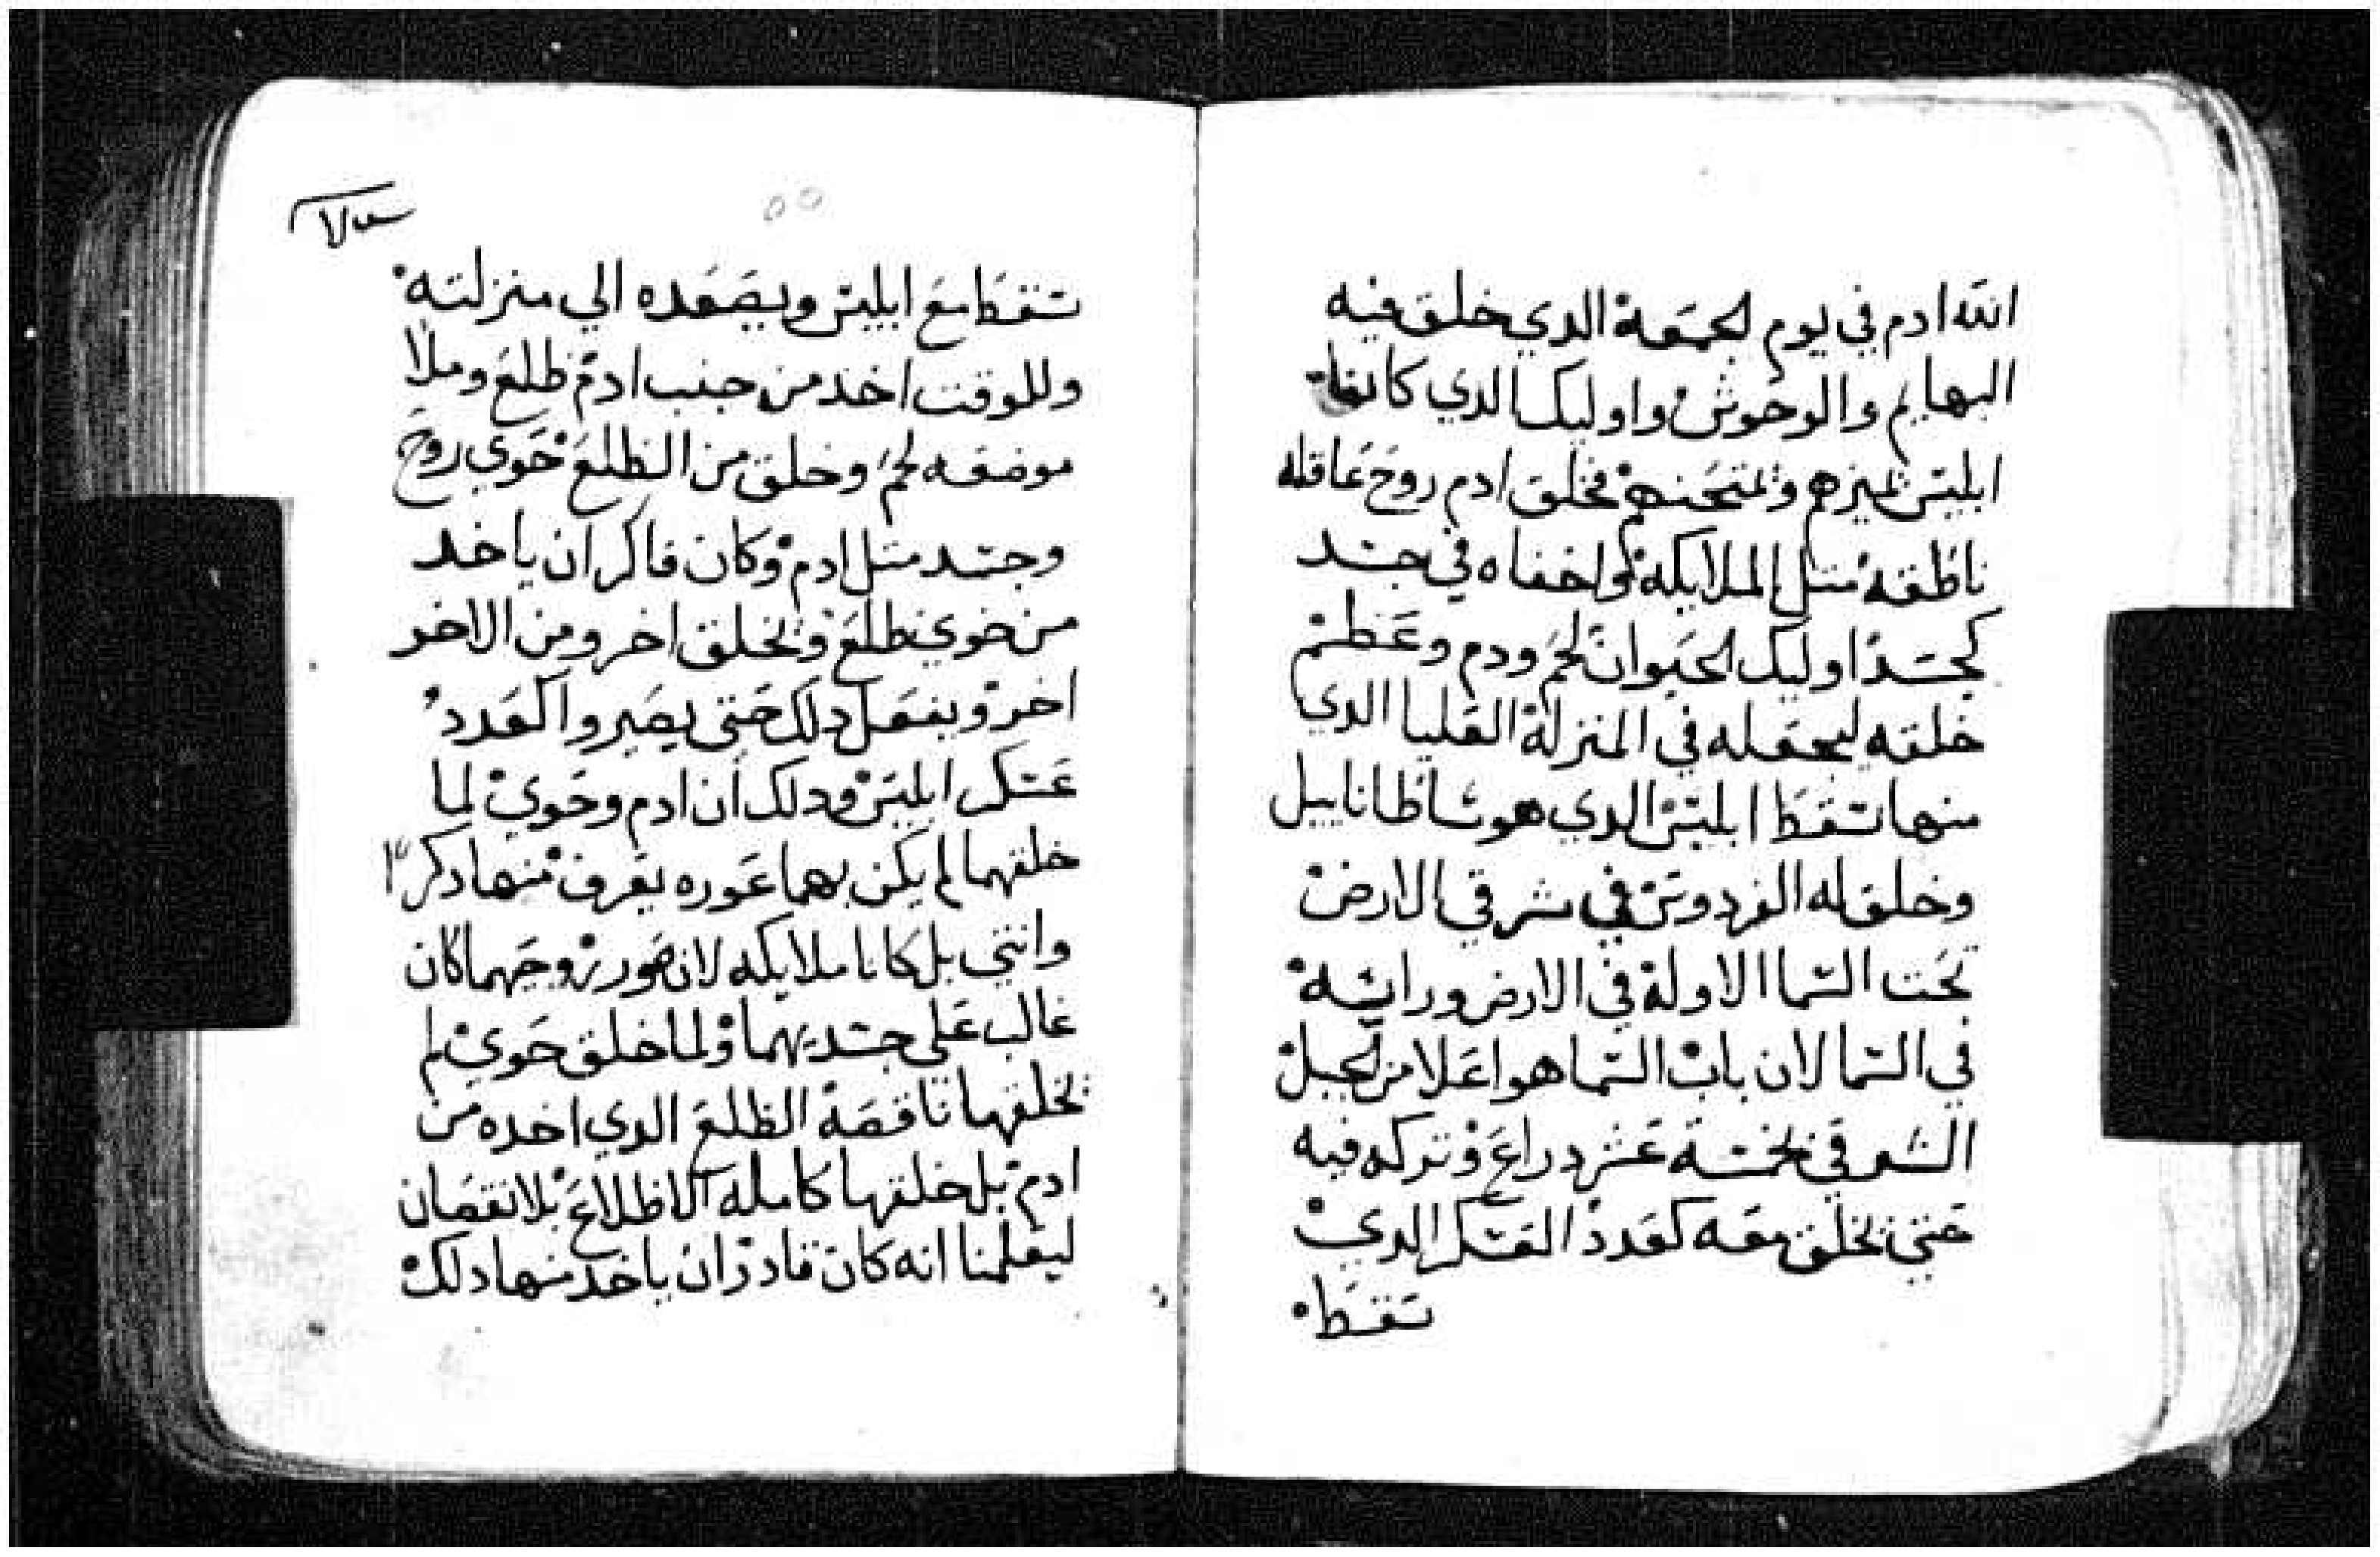 الله ادم في يوم الجمعة الدي خلق فيه
البهايم والوحوش واوليك الدي كانوا
ابليس يميزهم ويمتحنهم فخلق ادم روح عاقله
ناطقه متل الملايكة واخفاه في جسد
كجسد اوليك الحيوان لحم ودم وعظم
خلقه ليجعله في المنزلة العليا الدي
منها سقط ابليس الدي هو ساطانابيل
وخلق له الفردوس في شرقي الارض
تحت السما الاولة في الارض وراسه
في السما لان باب السما هو اعلا من الجبل
الشرقي بخمسة عشر دراع وتركه فيه
حتي يخلق معه كعدد العسكر الدي
سقط
سقط مع ابليس ويصعده الي منزلته
وللوقت اخد من جنب ادم ظلع وملا
موضعه لحم وخلق من الظلع حوي روح
وجسد متل ادم وكان فاكر ان ياخد
من حوي ظلع ويخلق اخر ومن الاخر
اخر ويفعل دلك حتي يصيروا كعدد
عسكر ابليس ودلك ان ادم وحوي لما
خلقهما لم يكن بهما عوره يعرف منها دكرا
وانتي بل كانا ملايكه لان صور روحهما كان
غالب علي جسديهما ولما خلق حوي لم
يخلقها ناقصة الظلع الدي اخده من
ادم بل خلقها كاملة الاظلاع بلا نقصان
ليعلمنا انه كان قادر ان ياخد منها دلك